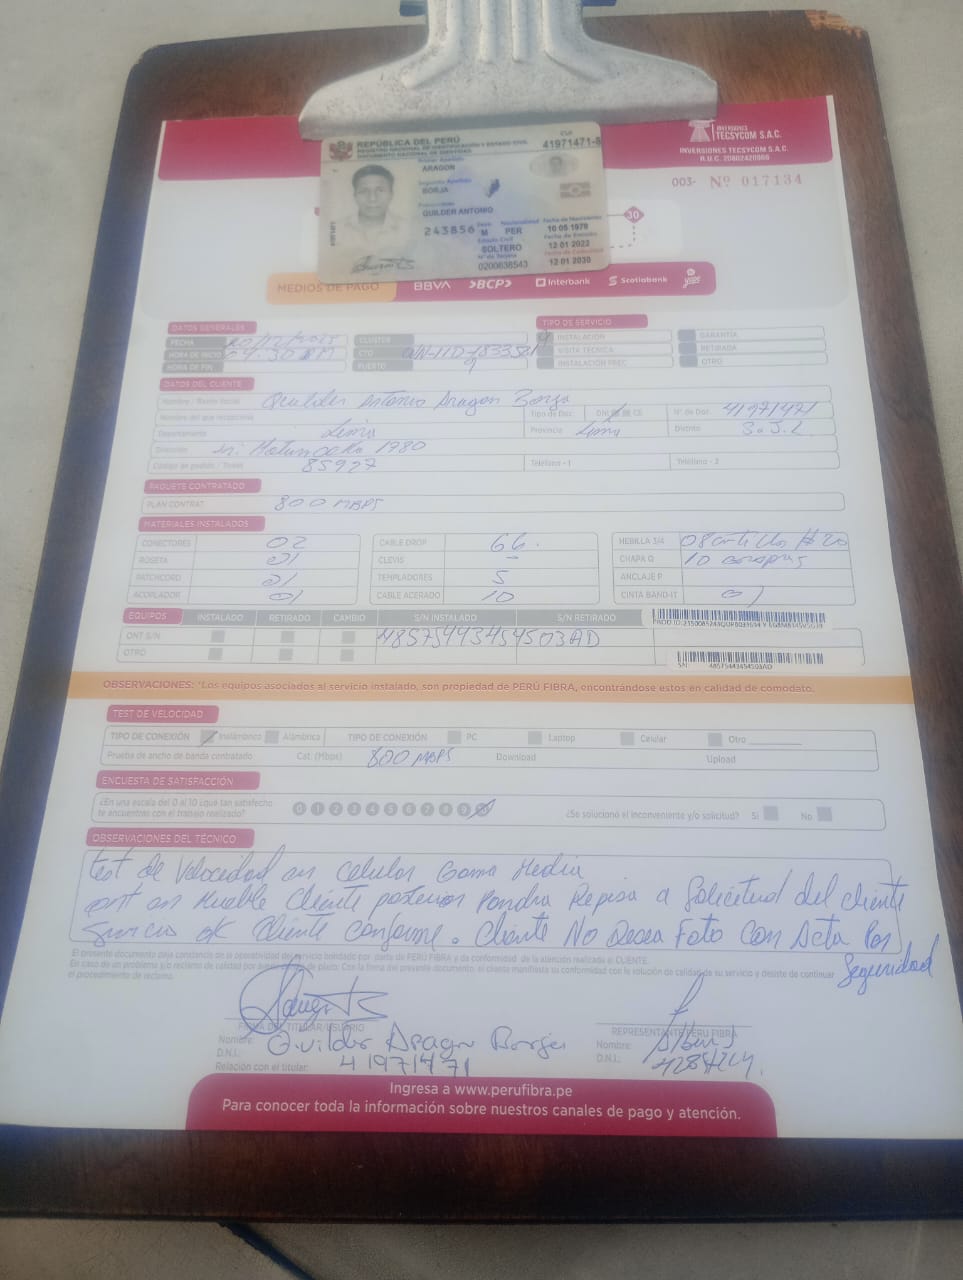 INVERSIONES
TECSYCOM S.A.C.
INVERSIONES TECSYCOM S.A.C.
R.U.C. 20602420566
003- Nº 017134
REPÚBLICA DEL PERÚ
REGISTRO NACIONAL DE IDENTIFICACIÓN Y ESTADO CIVIL
DOCUMENTO NACIONAL DE IDENTIDAD
CUI
41971471-8
Primer Apellido
ARAGON
Segundo Apellido
BORJA
Prenombres
QUILDER ANTONIO
243856
Sexo
M
Nacionalidad
PER
Fecha de Nacimiento
10 05 1979
Estado Civil
SOLTERO
Fecha de Emisión
12 01 2022
Fecha de Caducidad
12 01 2030
0200638543
30
MEDIOS DE PAGO BBVA BCP Interbank Scotiabank yape
DATOS GENERALES TIPO DE SERVICIO
FECHA CLUSTER INSTALACIÓN GARANTÍA
HORA DE INICIO CTO VISITA TÉCNICA RETIRADA
HORA DE FIN PUERTO 9 INSTALACIÓN PREC OTRO
DATOS DEL CLIENTE
Nombre / Razón Social Quilder Antonio Aragon Borja
Nombre del que recepciona Tipo de Doc. DNI CE N° de Doc. 41971471
Departamento Lima Provincia Lima Distrito S.J.L.
Dirección 1980
Código de pedido / Ticket 85927 Teléfono - 1 Teléfono - 2
PAQUETE CONTRATADO
PLAN CONTRAT 800 MBPS
MATERIALES INSTALADOS
CONECTORES 02 CABLE DROP 66. HEBILLA 3/4
ROSETA 01 CLEVIS - CHAPA Q 10 grapas
PATCHCORD 01 TEMPLADORES 5 ANCLAJE P
ACOPLADOR 01 CABLE ACERADO 10 CINTA BAND-IT 01
EQUIPOS INSTALADO RETIRADO CAMBIO S/N INSTALADO S/N RETIRADO
ONT S/N 48575443454503AD
OTRO
S/N 48575443454503AD
OBSERVACIONES: *Los equipos asociados al servicio instalado, son propiedad de PERÚ FIBRA, encontrándose estos en calidad de comodato.
TEST DE VELOCIDAD
TIPO DE CONEXIÓN Inalámbrico Alámbrica TIPO DE CONEXIÓN PC Laptop Celular Otro
Prueba de ancho de banda contratado Cat. (Mbps) 800 MBPS Download Upload
ENCUESTA DE SATISFACCIÓN
¿En una escala del 0 al 10 ¿que tan satisfecho
te encuentras con el trabajo realizado? 0 1 2 3 4 5 6 7 8 9 ¿Se solucionó el inconveniente y/o solicitud? Si No
OBSERVACIONES DEL TÉCNICO
test de Velocidad en Celular Gama Media
ont en Mueble Cliente posterior Pondra Repisa a Solicitud del cliente
Servicio ok Cliente Conforme. Cliente No Desea Foto Con Acta Por
Seguridad
El presente documento deja constancia de la operatividad del servicio brindado por parte de PERÚ FIBRA y da conformidad de la atención realizada al CLIENTE.
FIRMA DEL TITULAR/USUARIO REPRESENTANTE PERU FIBRA
Nombre: Quilder Aragon Borja Nombre:
D.N.I. 41971471 D.N.I.
Relación con el titular:
Ingresa a www.perufibra.pe
Para conocer toda la información sobre nuestros canales de pago y atención.